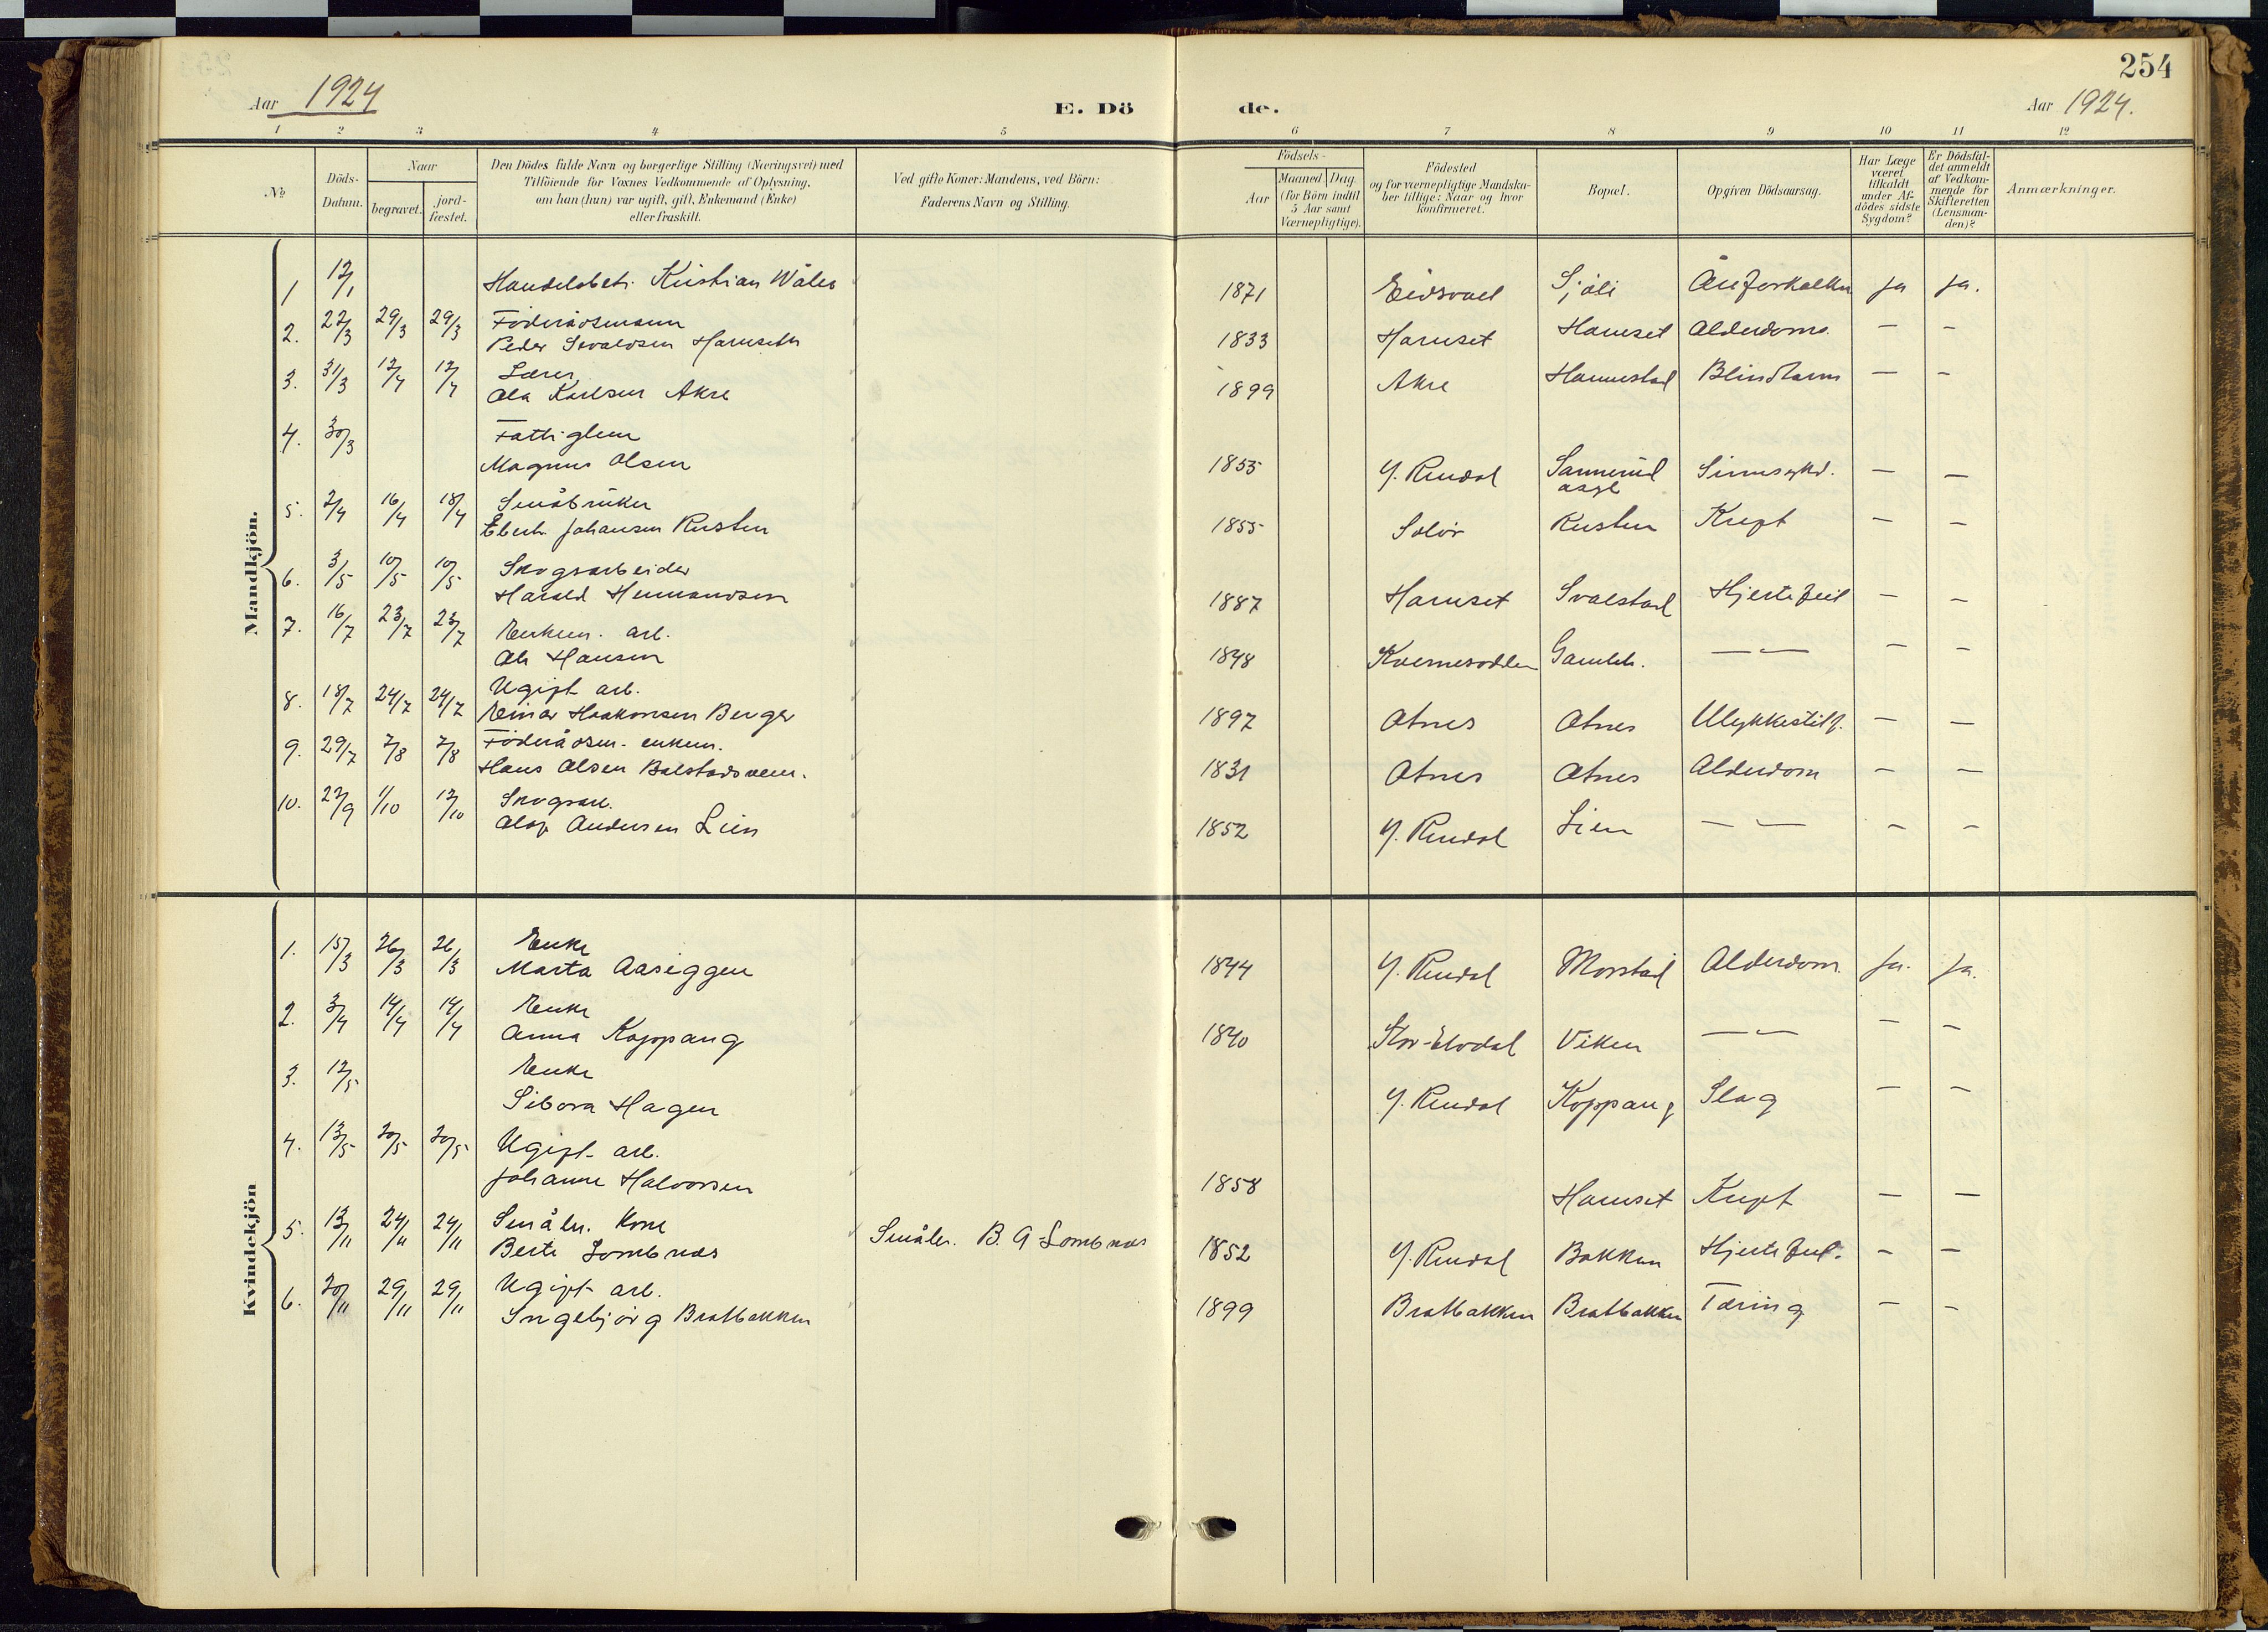 254
Aar 1924
E. Dö
de.
Aar 1924.
1 2 3 4 5 6 7 8 9 10 11 12
No
Döds-
Datum.
Naar
begravet.
jord-
fæstet.
Den Dödes fulde Navn og borgerlige Stilling (Næringsvei) med
Tilföiende for Voxnes Vedkommende af Oplysning,
om han (hun) var ugift, gift, Enkemand (Enke)
eller fraskilt.
Ved gifte Koner: Mandens, ved Börn:
Faderens Navn og Stilling.
Födsels-
Aar
Maaned. Dag.
(for Börn indtil
5 Aar samt
Værnepligtige).
Födested
og for værnepligtige Mandska-
ber tillige: Naar og hvor
konfirmeret.
Bopæl.
Opgiven Dödsaarsag.
Har Læge
været
tilkaldt
under Af-
dödes sidste
Sygdom?
Er Dödsfal-
det anmeldt
af Vedkom-
mende for
Skifteretten
(Lensman-
den)?
Anmærkninger.
Mandkjön.
1 12/1 Handelsbetj. Kristian Wåler 1871 Eidsvoll Sjöli Åreforkalkn ja ja.
2. 22/3 29/3 29/3 Föderådsmann
Peder Sivaldsen Harnseth 1833 Harnset Harnset Alderdoms. — —
3. 31/3 12/4 12/4 Lærer
Ola Karlsen Akre 1899 Akre Hannestad Blindtarm — —
4. 30/3 Fattiglem
Magnus Olsen 1855 Y. Rendal Sannerud
asyl Sinnsykd. — —
5. 2/4 16/4 18/4 Småbruker
Eberh. Johansen Rusten 1855 Solör Rusten Kreft — —
6. 3/5 10/5 10/5 Skogsarbeider
Harald Hermandsen 1887 Harnset Svalstad Hjertefeil — —
7. 16/7 23/7 23/7 Enkem. arb.
Ole Hansen 1848 Kvernesodden Gamleh. — — — —
8. 18/7 24/7 24/7 Ugift arb.
Einar Haakonsen Berger 1897 Otnes Otnes Ulykkestilf. — —
9. 29/7 7/8 7/8 Föderådsm. enkem.
Hans Olsen Bolstadsveen. 1831 Otnes Otnes Alderdom — —
10. 27/9 11/10 12/10 Skogsarb.
Olaf Andersen Lien 1852 Y. Rendal Lien — — — —
Kvindekjön
1. 15/3 26/3 26/3 Enke
Marta Aaseggen 1844 Y. Rendal Morstad Alderdom. Ja. Ja.
2. 3/4 14/4 14/4 Enke
Anna Koppang 1840 Stor-Elvdal Viken — — — —
3. 12/5 Enke
Sibora Hagen Y. Rendal Koppang Slag — —
4. 13/5 20/5 20/5 Ugift arb.
Johanne Halvorsen 1858 Harnset Kreft — —
5. 13/11 24/11 24/11 Småbr. kone
Berte Lombnæs Småbr. B. A Lombnæs 1852 Y. Rendal Bakken Hjertefeil. — —
6. 20/11 29/11 29/11 Ugift arb.
Ingebjörg Bratbakken 1899 Bratbakken Bratbakken Tæring — —